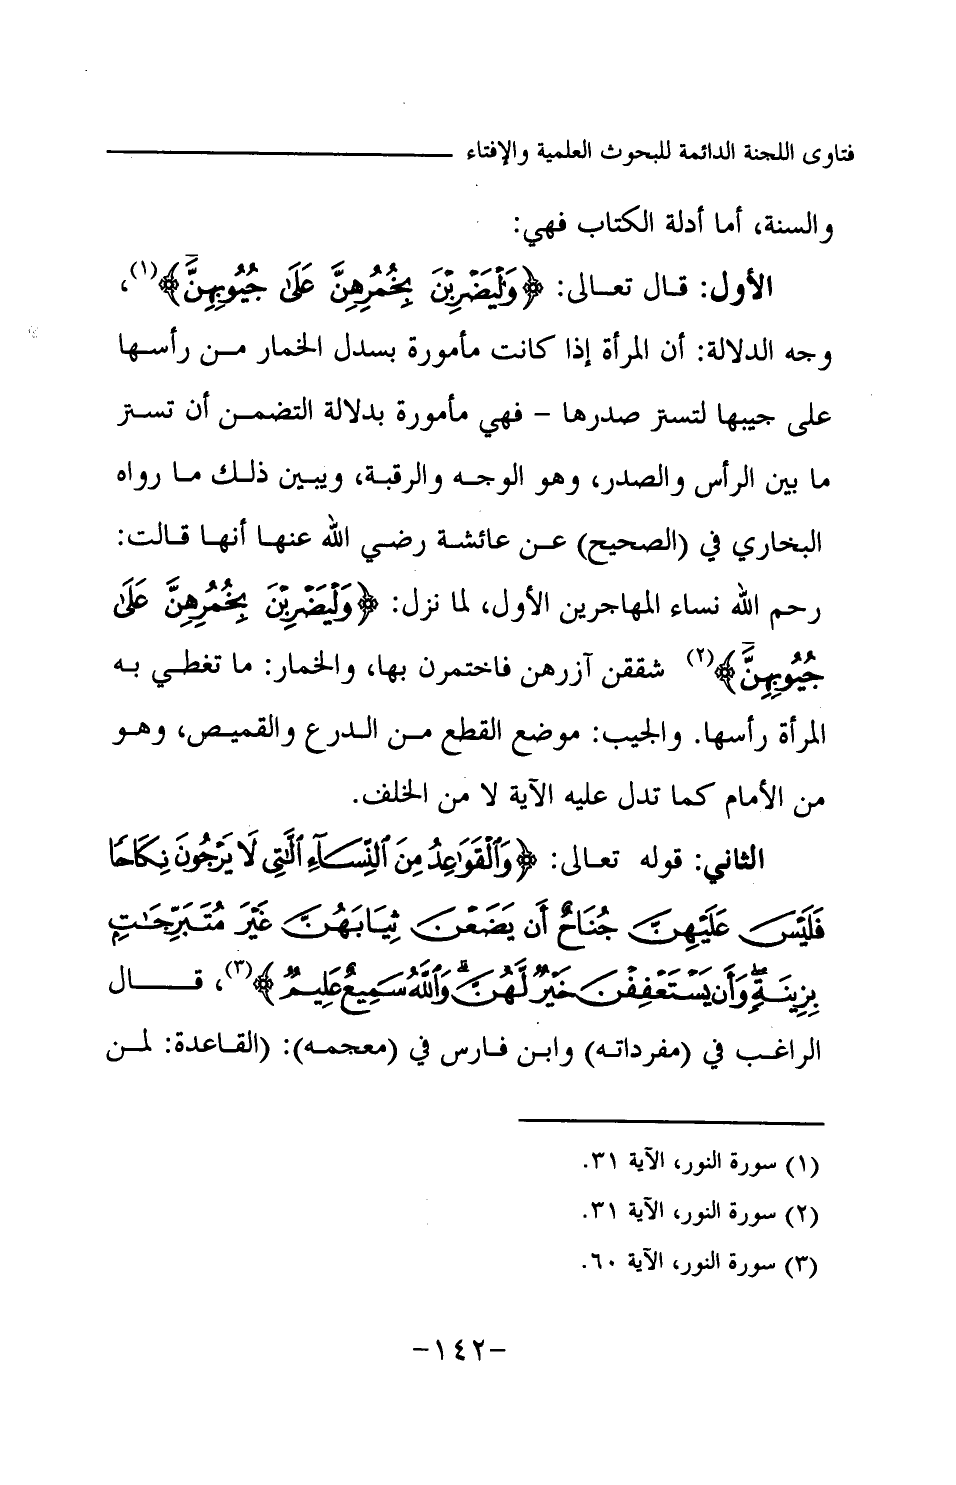 فتاوى اللجنة الدائمة للبحوث العلمية والإفتاء
والسنة، أما أدلة الكتاب فهي:
الأول: قال تعالى: ﴿وَلْيَضْرِبْنَ بِخُمُرِهِنَّ عَلَىٰ جُيُوبِهِنَّ﴾(١)،
وجه الدلالة: أن المرأة إذا كانت مأمورة بسدل الخمار من رأسها
على جيبها لتستر صدرها - فهي مأمورة بدلالة التضمن أن تستر
ما بين الرأس والصدر، وهو الوجه والرقبة، ويبين ذلك ما رواه
البخاري في (الصحيح) عن عائشة رضي الله عنها أنها قالت:
رحم الله نساء المهاجرين الأول، لما نزل: ﴿وَلْيَضْرِبْنَ بِخُمُرِهِنَّ عَلَىٰ
جُيُوبِهِنَّ﴾(٢) شققن آزرهن فاختمرن بها، والخمار: ما تغطي به
المرأة رأسها. والجيب: موضع القطع من الدرع والقميص، وهو
من الأمام كما تدل عليه الآية لا من الخلف.
الثاني: قوله تعالى: ﴿وَٱلْقَوَٰعِدُ مِنَ ٱلنِّسَآءِ ٱلَّٰتِى لَا يَرْجُونَ نِكَاحًا
فَلَيْسَ عَلَيْهِنَّ جُنَاحٌ أَن يَضَعْنَ ثِيَابَهُنَّ غَيْرَ مُتَبَرِّجَٰتٍۭ
بِزِينَةٍۖ وَأَن يَسْتَعْفِفْنَ خَيْرٌ لَّهُنَّۗ وَٱللَّهُ سَمِيعٌ عَلِيمٌ﴾(٣)، قال
الراغب في (مفرداته) وابن فارس في (معجمه): (القاعدة: لمن
(١) سورة النور، الآية ٣١.
(٢) سورة النور، الآية ٣١.
(٣) سورة النور، الآية ٦٠.
-١٤٢-